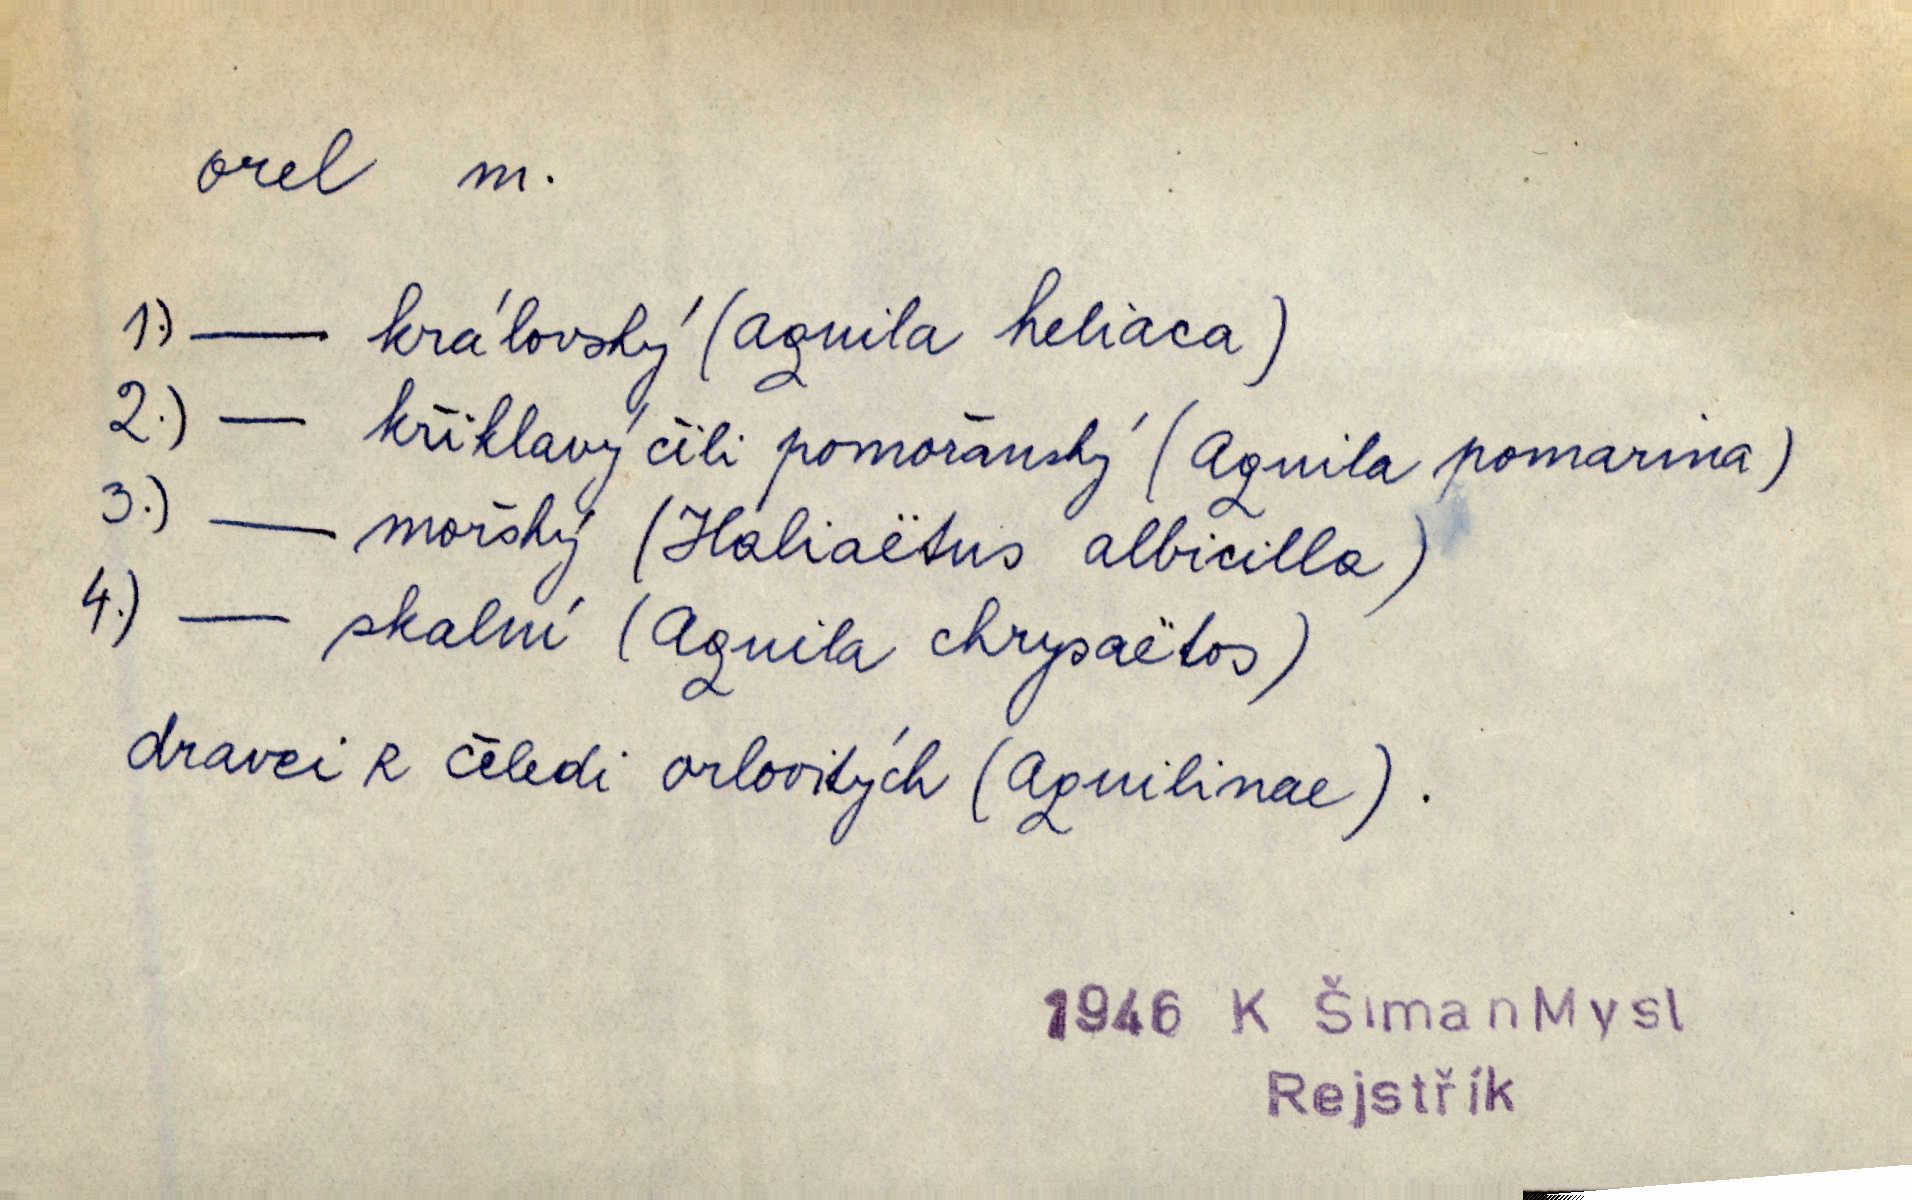 orel m.
1.) — královský (Aquila heliaca)
2.) — křiklavý čili pomořanský (Aquila pomarina)
3.) — mořský (Haliaëtus albicilla)
4.) — skalní (Aquila chrysaëtos)
dravci z čeledi orlovitých (Aquilinae).
1946 K Šiman Mysl
Rejstřík